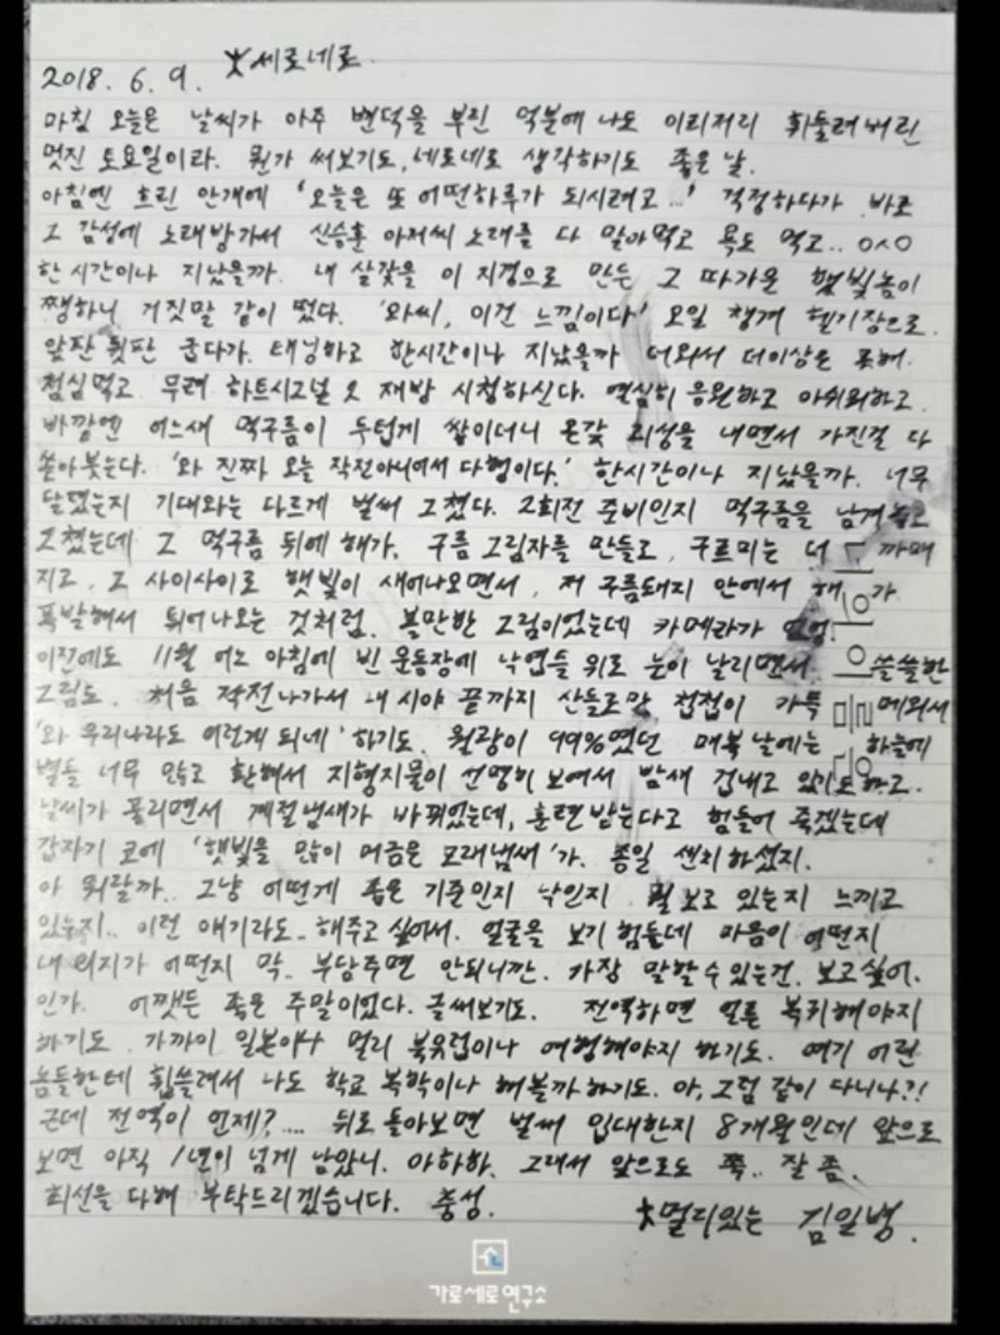 세로네로.
2018. 6. 9.
마침 오늘은 날씨가 아주 변덕을 부린 덕분에 나도 이리저리 휘둘려버린
멋진 토요일이라. 뭔가 써보기도, 네로네로 생각하기도 좋은 날.
아침엔 흐린 안개에 '오늘은 또 어떤하루가 되시려고...' 걱정하다가 바로
그 감성에 노래방가서 신승훈 아저씨 노래를 다 말아먹고 욕도 먹고.. ㅇㅅㅇ
한시간이나 지났을까. 내 살갗을 이 지경으로 만든 그 따가운 햇빛놈이
쨍하니 거짓말 같이 떴다. '와씨, 이건 느낌이다' 오일 챙겨 헬기장으로.
앞판 뒷판 굽다가. 태닝하고 한시간이나 지났을까 더워서 더이상은 못해.
점심먹고 무려 하트시그널 2 재방 시청하신다. 열심히 응원하고 아쉬워하고.
바깥엔 어느새 먹구름이 두텁게 쌓이더니 온갖 괴성을 내면서 가진걸 다
쏟아붓는다. '와 진짜 오늘 작전아니어서 다행이다.' 한시간이나 지났을까. 너무
달랬는지 기대와는 다르게 벌써 그쳤다. 2회전 준비인지 먹구름을 남겨놓고
그쳤는데 그 먹구름 뒤에 해가, 구름 그림자를 만들고, 구르미는 더 까매
지고, 그 사이사이로 햇빛이 새어나오면서, 저 구름돼지 안에서 해가
폭발해서 튀어나오는 것처럼. 볼만한 그림이었는데 카메라가 없엉.
이전에도 11월 어느 아침에 빈 운동장에 낙엽들 위로 눈이 날리면서 쓸쓸한
그림도. 처음 작전나가서 내 시야 끝까지 산들로만 첩첩이 가득 메워서
'와 우리나라도 이렇게 되네' 하기도. 월광이 99%였던 매복날에는 하늘에
별들 너무 많고 환해서 지형지물이 선명히 보여서 밤새 겁내고 있기도하고.
날씨가 풀리면서 계절냄새가 바뀌었는데, 훈련받는다고 힘들어 죽겠는데
갑자기 코에 '햇빛을 많이 머금은 모래냄새'가. 종일 센치하셨지.
아 뭐랄까.. 그냥 어떤게 좋은 기준인지 낙인지 뭘보고 있는지 느끼고
있는지.. 이런 얘기라도.. 해주고 싶어서. 얼굴을 보기 힘든데 마음이 어떤지
내 의지가 어떤지 막. 부담주면 안되니깐. 가장 말할수있는건. 보고싶어.
인가. 어쨋든 좋은 주말이었다. 글써보기도. 전역하면 얼른 복귀해야지
하기도. 가까이 일본이나 멀리 북유럽이나 여행해야지 하기도. 여기 어린
놈들한테 휩쓸려서 나도 학교 복학이나 해볼까하기도. 아, 그럼 같이 다니나?!
근데 전역이 언제?.... 뒤로 돌아보면 벌써 입대한지 8개월인데 앞으로
보면 아직 1년이 넘게 남았니. 아하하. 그래서 앞으로도 쭉.. 잘 좀.
최선을 다해 부탁드리겠습니다. 충성.
멀리있는 김일병.
가로세로연구소